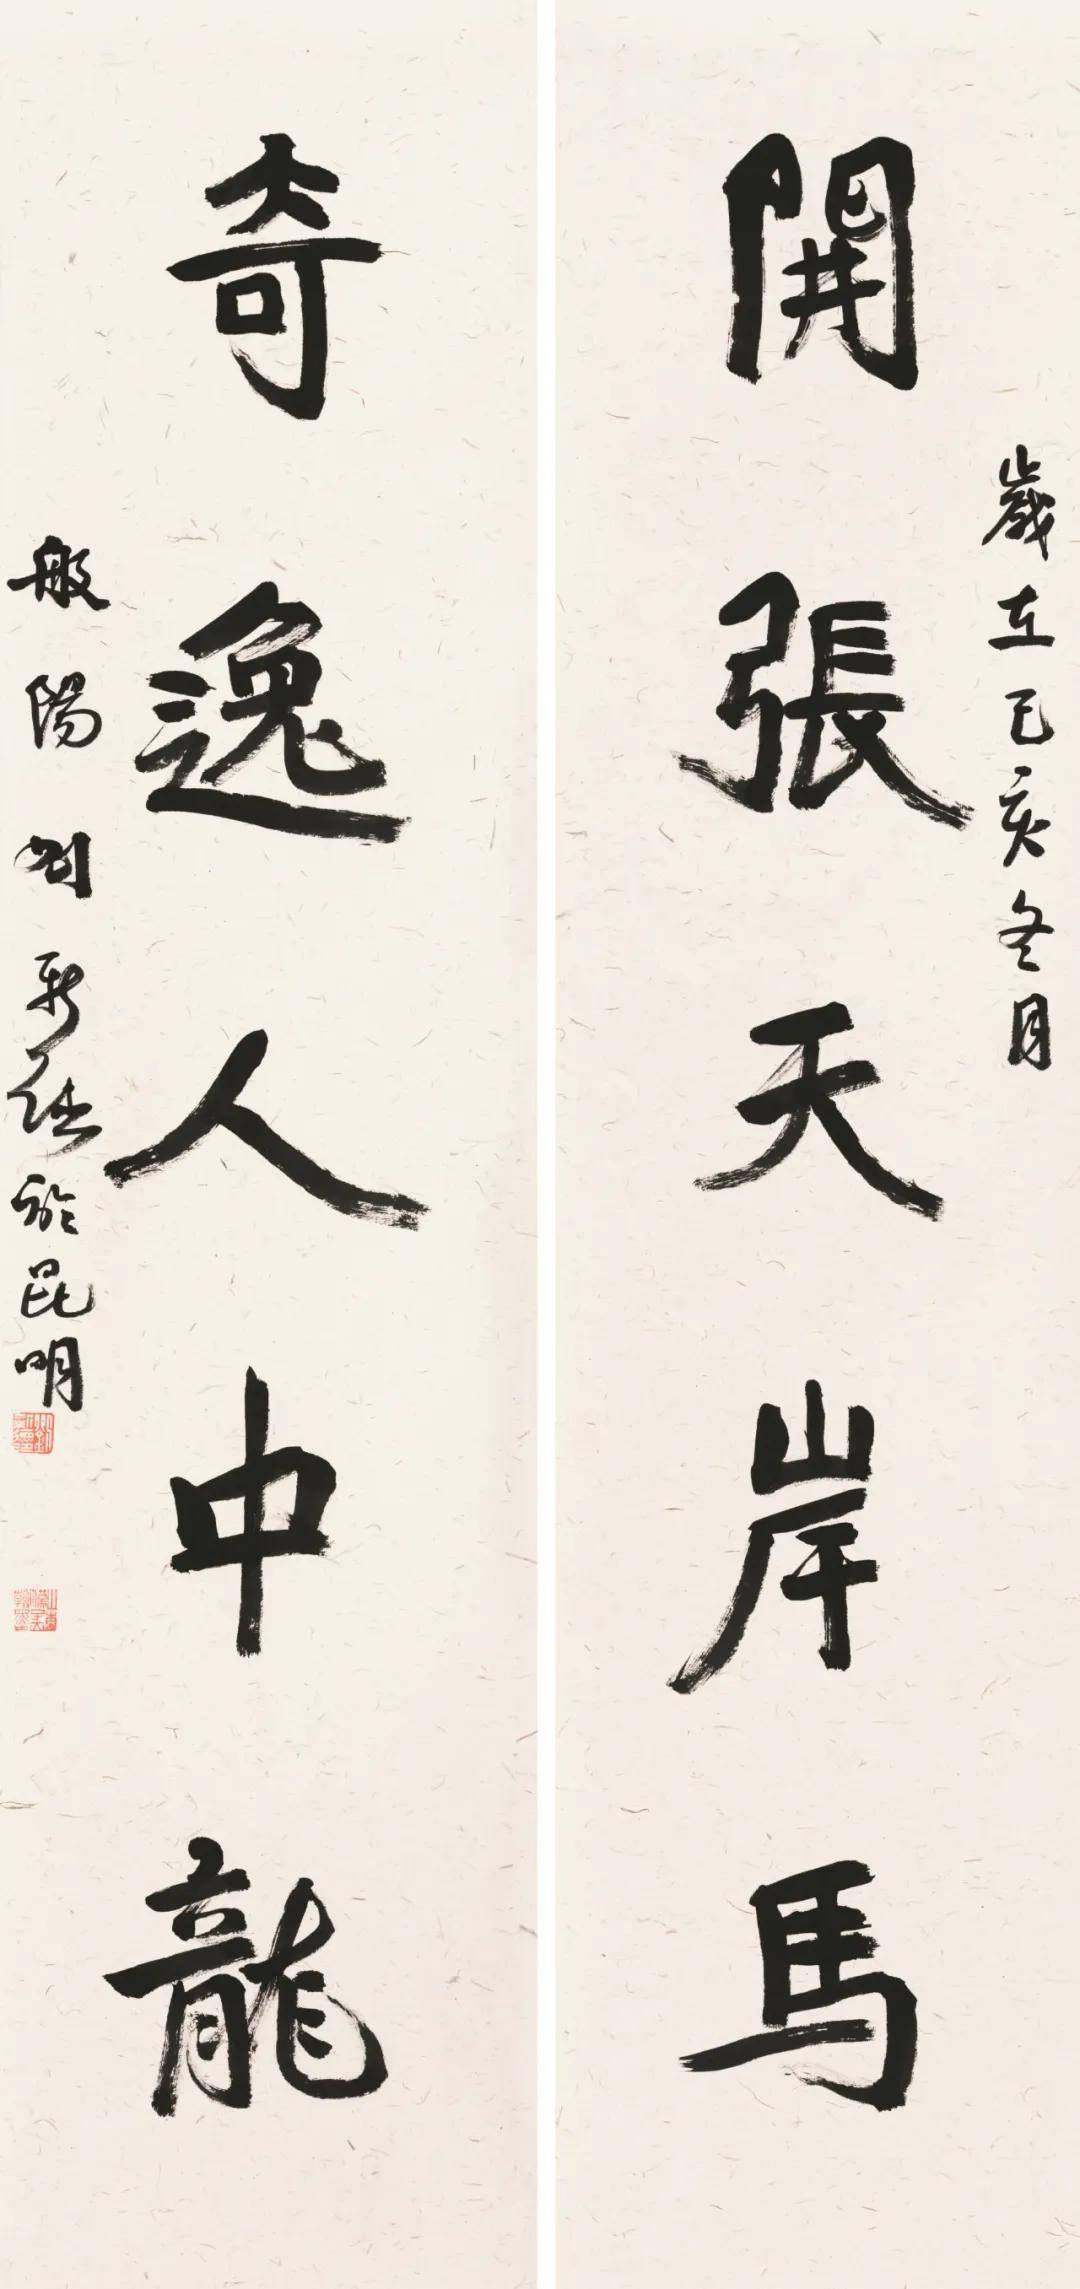 開張天岸馬
歲在己亥冬月
奇逸人中龍
般陽劉新德於昆明